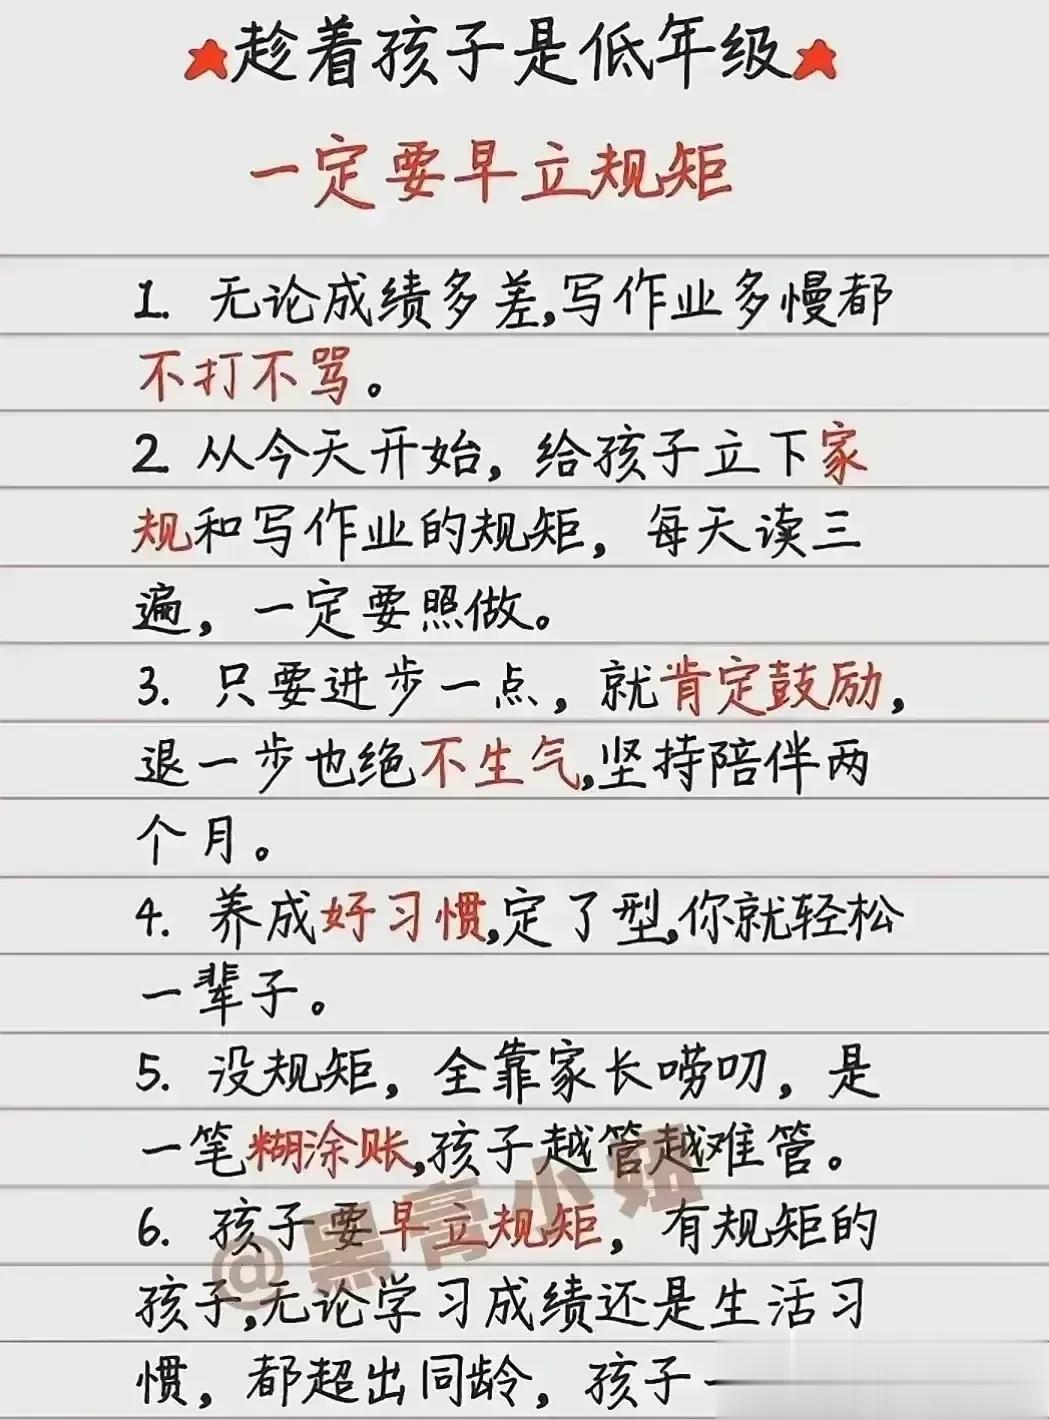 趁着孩子是低年级
一定要早立规矩
1. 无论成绩多差,写作业多慢都
不打不骂。
2. 从今天开始，给孩子立下家
规和写作业的规矩，每天读三
遍，一定要照做。
3. 只要进步一点，就肯定鼓励，
退一步也绝不生气,坚持陪伴两
个月。
4. 养成好习惯,定了型,你就轻松
一辈子。
5. 没规矩，全靠家长唠叨，是
一笔糊涂账,孩子越管越难管。
6. 孩子要早立规矩，有规矩的
孩子,无论学习成绩还是生活习
惯，都超出同龄，孩子一